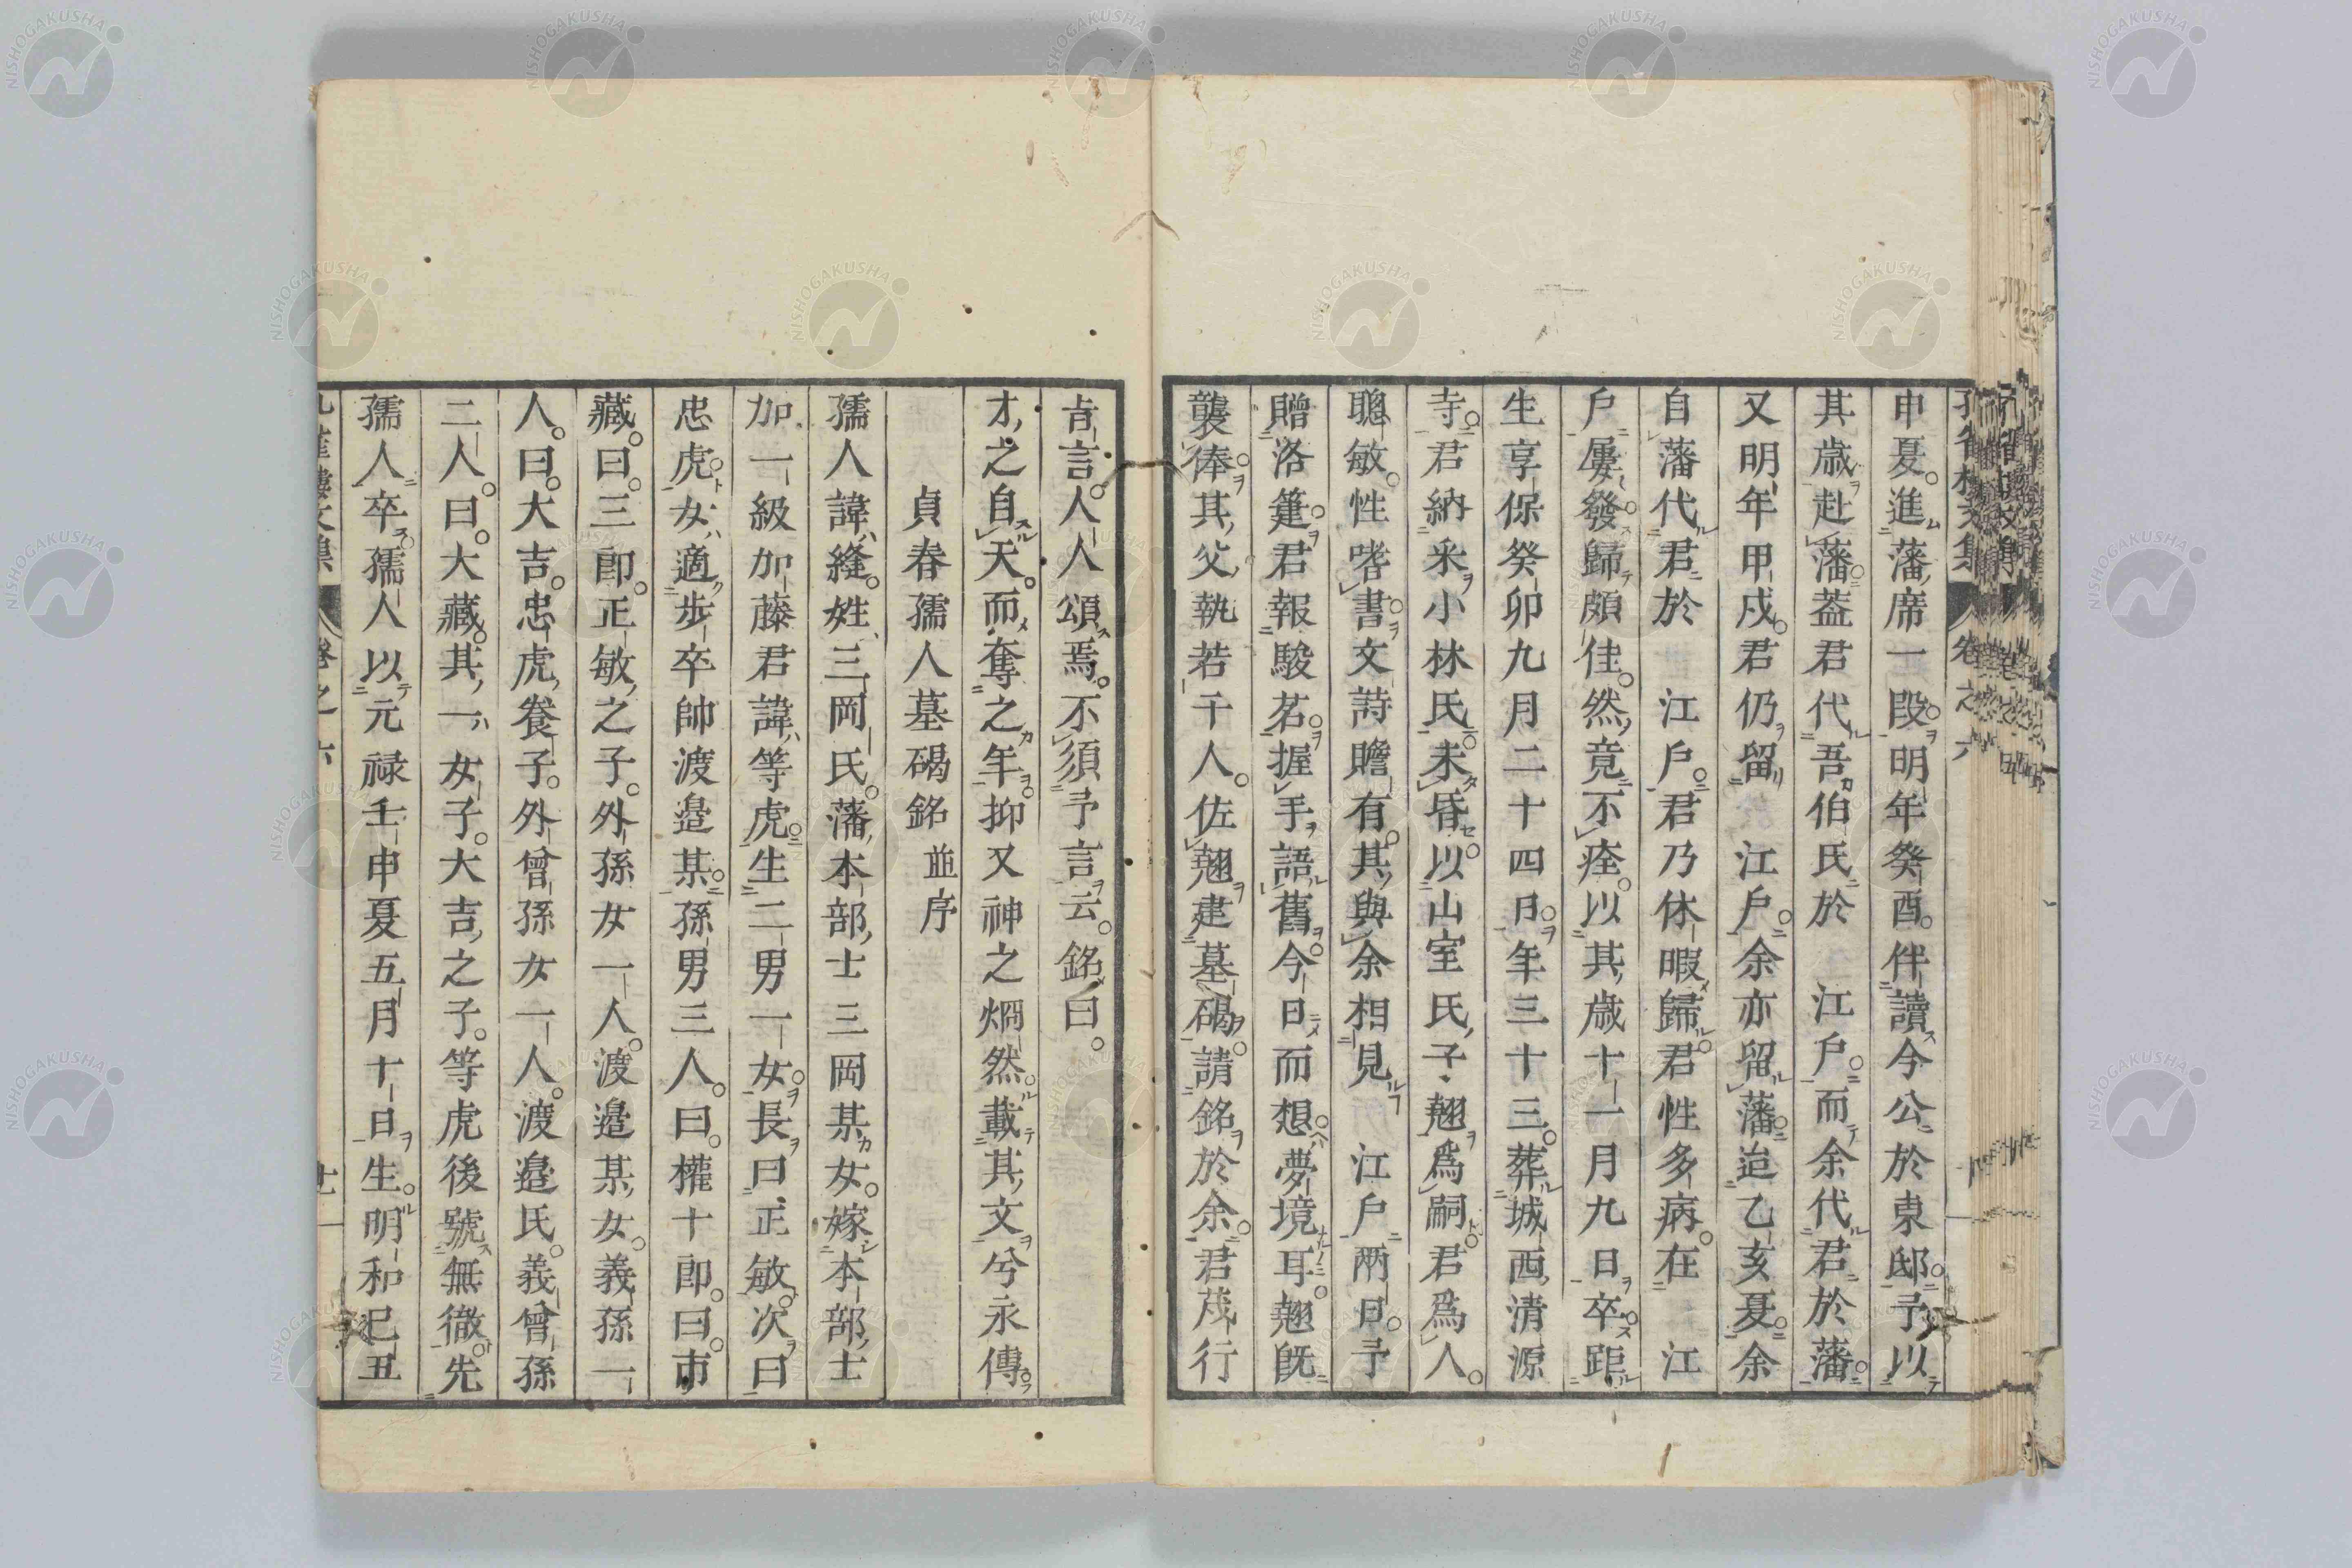 申夏進藩席一段明年癸酉伴讀今公於東邸予以
其歳赴藩葢君代吾伯氏於 江戶而余代君於藩
又明年甲戌君仍留 江戶余亦留藩迨乙亥夏余
自藩代君於 江戶君乃休暇歸君性多病在 江
戶屢發歸頗佳然竟不痊以其歳十一月九日卒距
生享保癸卯九月二十四日年三十三葬城西清源
寺君納釆小林氏未昏以山室氏子翹爲嗣君爲人
聰敏性嗜書文詩贍有其與余相見 江戶兩日予
贈洛箑君報駿茗握手語舊今日而想夢境耳翹既
襲俸其父執若干人佐翹建墓碣請銘於余君茂行
卷之六
旹言人人頌焉不須予言云銘曰
才之自天而奪之年抑又神之烱然載其文兮永傳
貞春孺人墓碣銘 並序
孺人諱縫姓三岡氏藩本部士三岡某女嫁本部士
加一級加藤君諱等虎生二男一女長曰正敏次曰
忠虎女適步卒帥渡邉某孫男三人曰權十郎曰市
藏曰三郎正敏之子外孫女一人渡邉某女義孫一
人曰大吉忠虎養子外曾孫女一人渡邉氏義曾孫
二人曰大藏其一女子大吉之子等虎後號無徹先
孺人卒孺人以元祿壬申夏五月十日生明和己丑
卷之六 十一
NISHOGAKUSHA